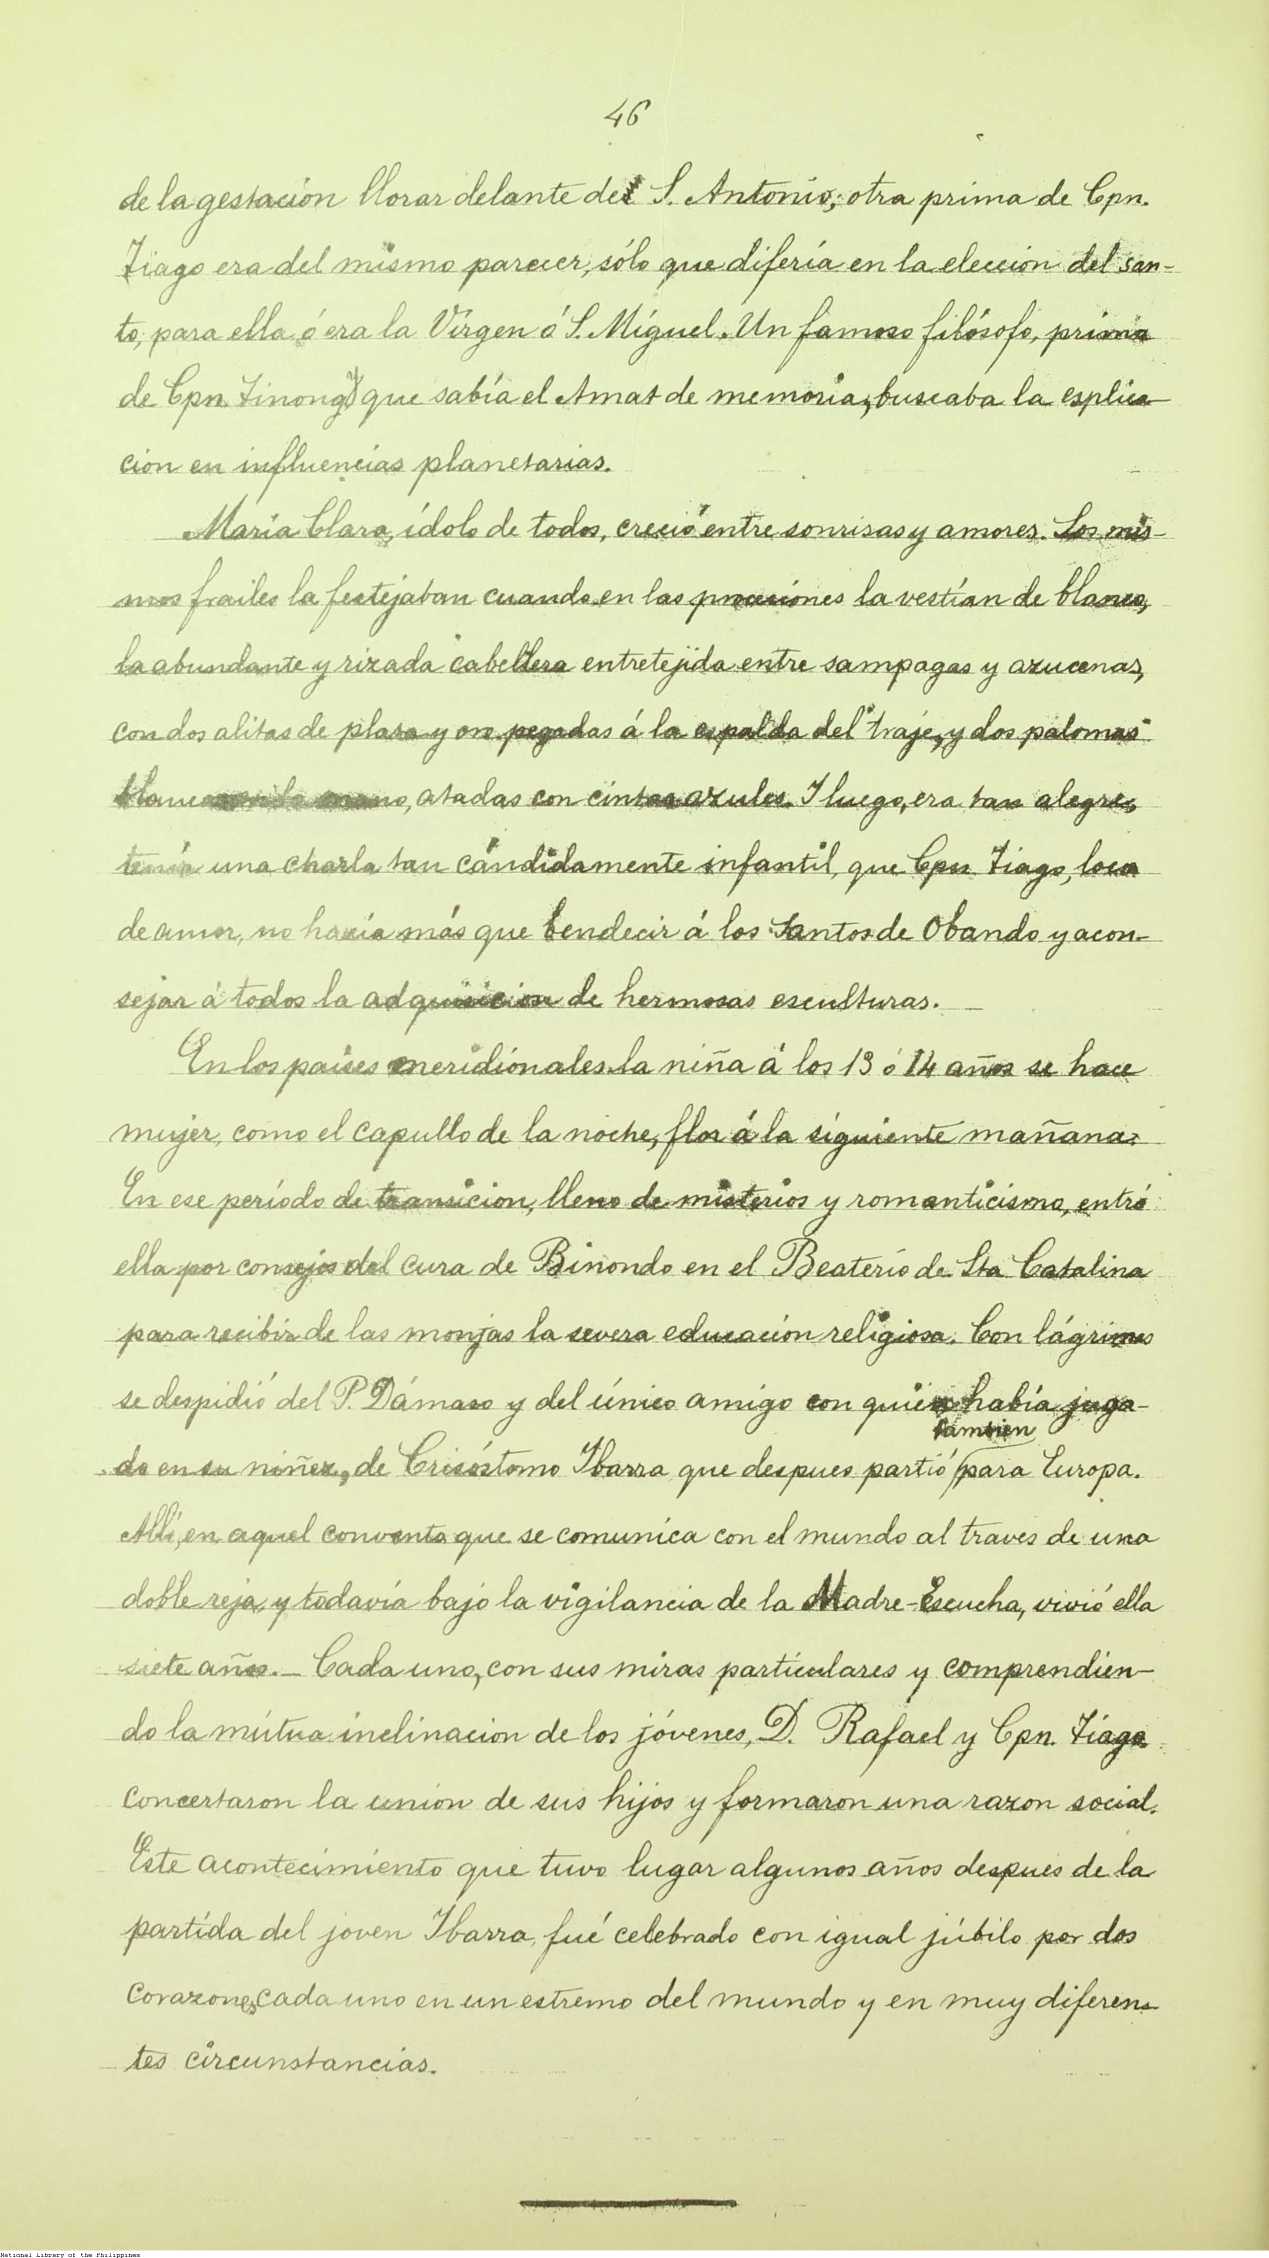 46
de la gestación llorar delante de S. Antonio; otra prima de Cpn.
Tiago era del mismo parecer, sólo que difería en la eleccion del san-
to, para ella ó era la Vírgen ó S. Miguel. Un famoso filósofo, primo
de Cpn Tinong y que sabía el Amat de memoria, buscaba la esplica-
cion en influencias planetarias.
María Clara, ídolo de todos, creció entre sonrisas y amores. Los mis-
mos frailes la festejaban cuando en las procesiones la vestían de blanco,
la abundante y rizada cabellera entretejida entre sampagas y azucenas,
con dos alitas de plata y oro pegadas á la espalda del traje, y dos palomas
blancas en la mano, atadas con cintas azules. I luego, era tan alegre,
tenía una charla tan cándidamente infantil, que Cpn Tiago, loco
de amor, no hacía más que bendecir á los Santos de Obando y acon-
sejar á todos la adquisicion de hermosas esculturas.
En los países meridionales la niña á los 13 ó 14 años se hace
mujer, como el capullo de la noche, flor á la siguiente mañana.
En ese período de transicion, lleno de misterios y romanticismo, entró
ella por consejos del cura de Binondo en el Beaterio de Sta Catalina
para recibir de las monjas la severa educación religiosa. Con lágrimas
se despidió del P. Dámaso y del único amigo con quien había juga-
tambien
do en su niñez, de Crisóstomo Ibarra que despues partió para Europa.
Allí, en aquel convento que se comunica con el mundo al traves de una
doble reja, y todavía bajo la vigilancia de la Madre-Escucha, vivió ella
siete años. — Cada uno, con sus miras particulares y comprendien-
do la mútua inclinacion de los jóvenes, D. Rafael y Cpn. Tiago
concertaron la union de sus hijos y formaron una razon social.
Este acontecimiento que tuvo lugar algunos años despues de la
partida del joven Ibarra, fué celebrado con igual júbilo por dos
corazones, cada uno en un estremo del mundo y en muy diferen-
tes circunstancias.
National Library of the Philippines